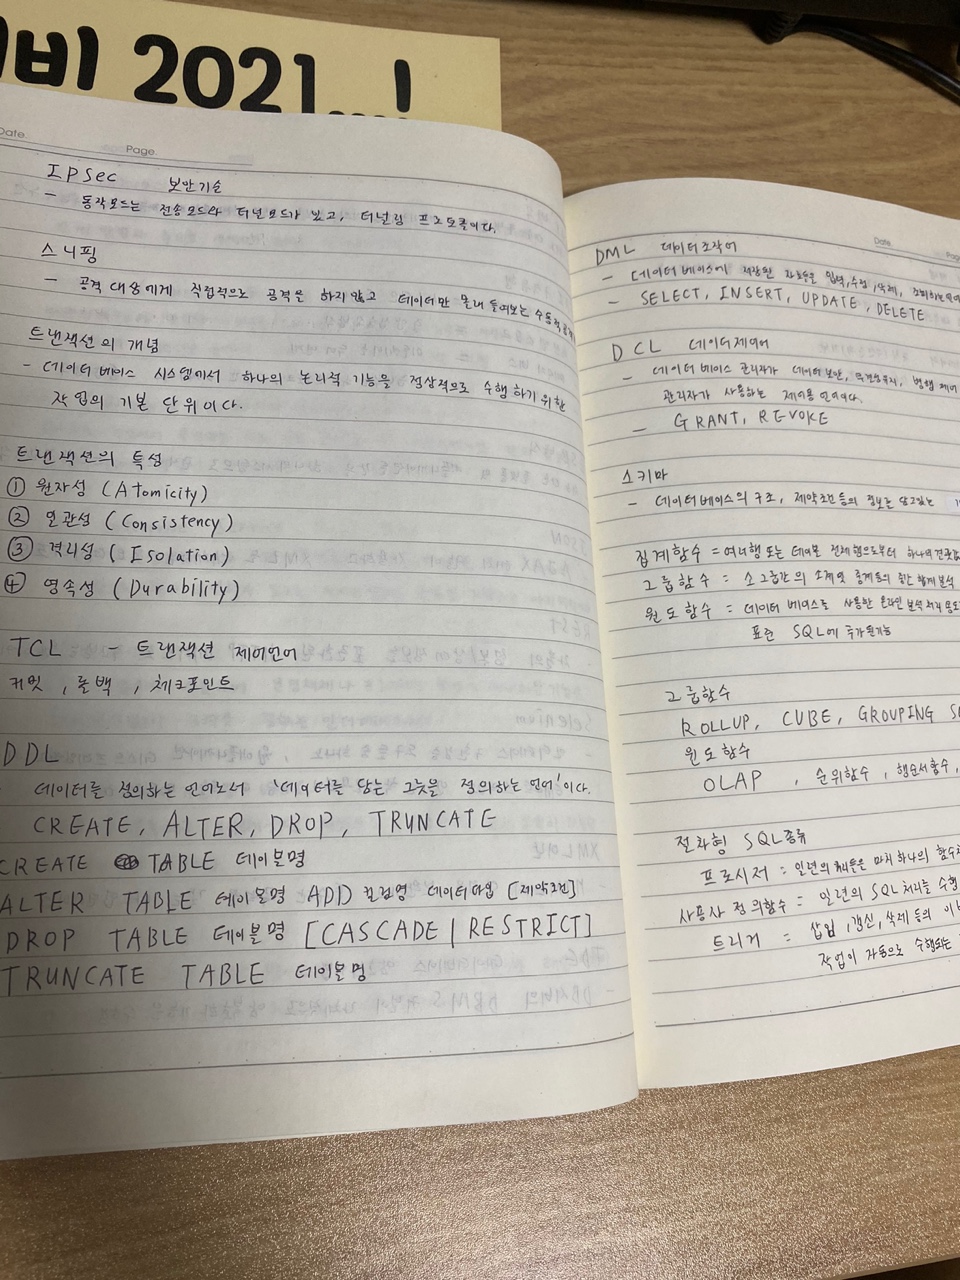 비 2021...!
Date.
Page.
IPSec 보안기술
- 동작모드는 전송모드와 터널모드가 있고, 터널링 프로토콜이다.
스니핑
- 공격 대상에게 직접적으로 공격을 하지않고 데이터만 몰래 들여보는 수동적
트랜잭션의 개념
- 데이터 베이스 시스템에서 하나의 논리적 기능을 정상적으로 수행하기 위한
작업의 기본 단위이다.
트랜잭션의 특성
① 원자성 (Atomicity)
② 일관성 (Consistency)
③ 격리성 (Isolation)
④ 영속성 (Durability)
TCL - 트랜잭션 제어언어
커밋, 롤백, 체크포인트
DDL
데이터를 정의하는 언어로서 '데이터를 담는 그릇을 정의하는 언어'이다.
CREATE, ALTER, DROP, TRUNCATE
CREATE TABLE 테이블명
ALTER TABLE 테이블명 ADD 컬럼명 데이터타입 [제약조건]
DROP TABLE 테이블명 [CASCADE | RESTRICT]
TRUNCATE TABLE 테이블명
Date.
DML 데이터조작어
- 데이터베이스에 저장된 자료들을 입력, 수정, 삭제, 조회하는
- SELECT, INSERT, UPDATE, DELETE
DCL 데이터제어어
- 데이터 베이스 관리자가 데이터 보안, 무결성유지, 병행 제어
관리자가 사용하는 제어용 언어이다.
- GRANT, REVOKE
스키마
- 데이터베이스의 구조, 제약조건등의 정보를 담고있는
집계함수 = 여러행 또는 테이블 전체 행으로부터 하나의
그룹함수 = 소그룹간의 소계 및 중계 등의 중간 합계 분석
윈도함수 = 데이터 베이스를 사용한 온라인 분석처리 용도
표준 SQL에 추가된기능
그룹함수
ROLLUP, CUBE, GROUPING
윈도 함수
OLAP, 순위함수, 행순서함수,
절차형 SQL종류
프로시저 = 일련의 쿼리들을 마치 하나의 함수
사용자 정의함수 = 일련의 SQL처리를 수행
트리거 = 삽입, 갱신, 삭제 등의
작업이 자동으로 수행되는